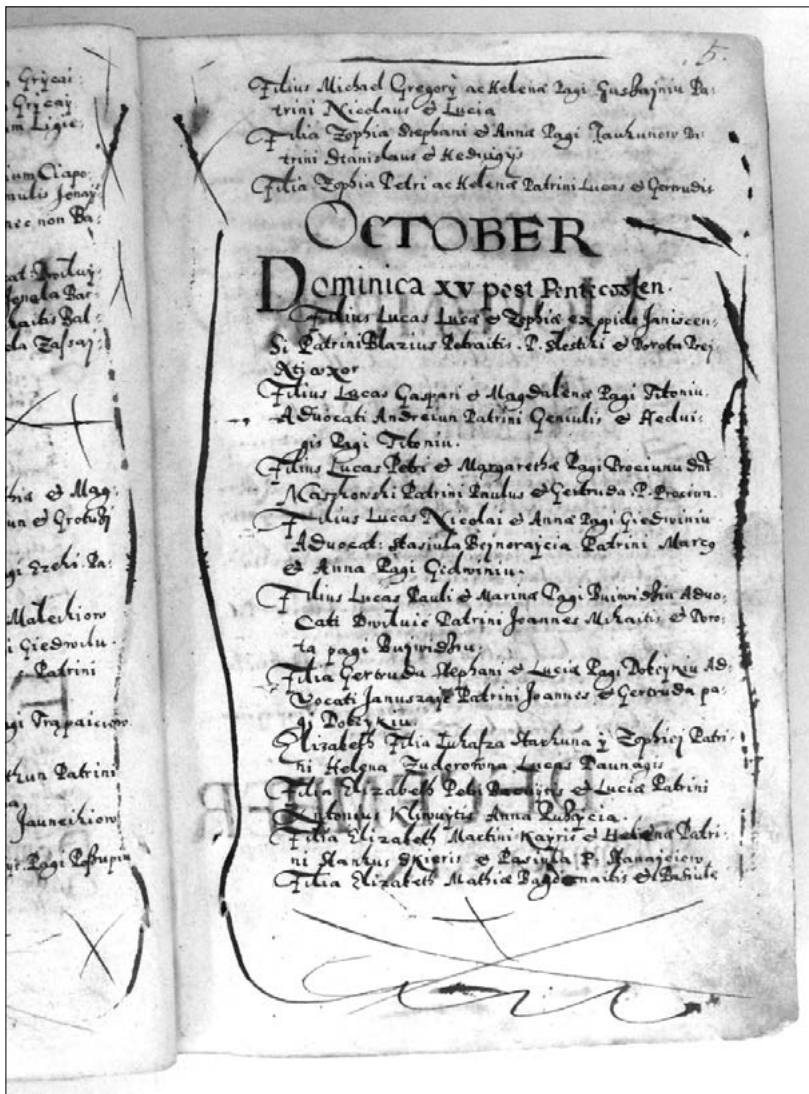 Grÿcai:
Grÿcaÿ
um Ligie:
ium Ciapo:
mulis Jonaÿ
nec non Ba:
Bar:
haitis Bal:
da
hiæ & Mag:
un & Grotuẞÿ
gi Ezeki. Pa:
Maleikiow
i Giedwilu.
Patrini
agi Trapaiciow
Patrini
Jauneikiow
Pagi
5.
Filius Michael Gregorÿ ac Helenæ Pagi Pa:
trini Nicolaus & Lucia
Filia Zophia Stephani & Annæ Pagi Pa:
trini Stanislaus & Hedvigÿs
Filia Zophia Petri ac Helenæ Patrini Lucas & Gertrudis
OCTOBER
Dominica XV post Pentecosten.
Filius Lucas Lucæ & Zophiæ ex opido Janiscen:
si Patrini Blazius Petraitis. P. & Dorota
uxor
Filius Lucas Gaspari & Magdalenæ Pagi Titoniu.
Advocati Andreiun Patrini Geniulis & Hedui:
gis Pagi Titoniu.
Filius Lucas Petri & Margarethæ Pagi Prociunu dni
Maszkowski Patrini Paulus & Gertruda. P. Prociun.
Filius Lucas Nicolai & Annæ Pagi Giedwiniu
Advocat: Stasiula Bejnorajcia Patrini Marcq
& Anna Pagi Gedwiniu.
Filius Lucas Pauli & Marinæ Pagi Buiwidẞiu Advo:
cati Dwiluic Patrini Joannes Mikaitis & Doro:
ta pagi Bujwidẞiu.
Filia Gertruda Stephani & Luciæ Pagi Dobkÿniu Ad:
vocati Patrini Joannes & Gertruda pa:
gi Dobkÿniu.
Elizabeth Filia Lukasza Starkuna ÿ Zophiej Patri:
ni Helena Zudorowna Lucas Paunagis
Filia Elizabeth Petri & Luciæ Patrini
Antonius Kliwuÿtis Anna
Filia Elizabeth Martini Kaÿris & Helenæ Patri:
ni Stankus Skieris & Pasiula P. Stanajciow
Filia Elizabeth Mathiæ Bagdonaitis &